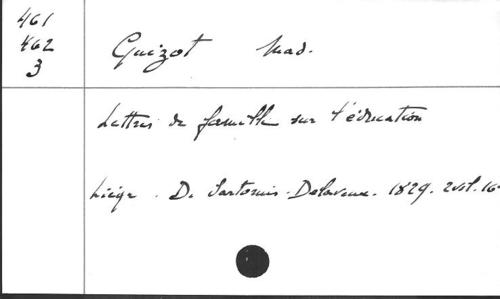 461
462
3
Guizot Mad.
Lettres de famille sur l'éducation
Liège. D. Sartorius-Delaveux. 1829. 2 vol. 16